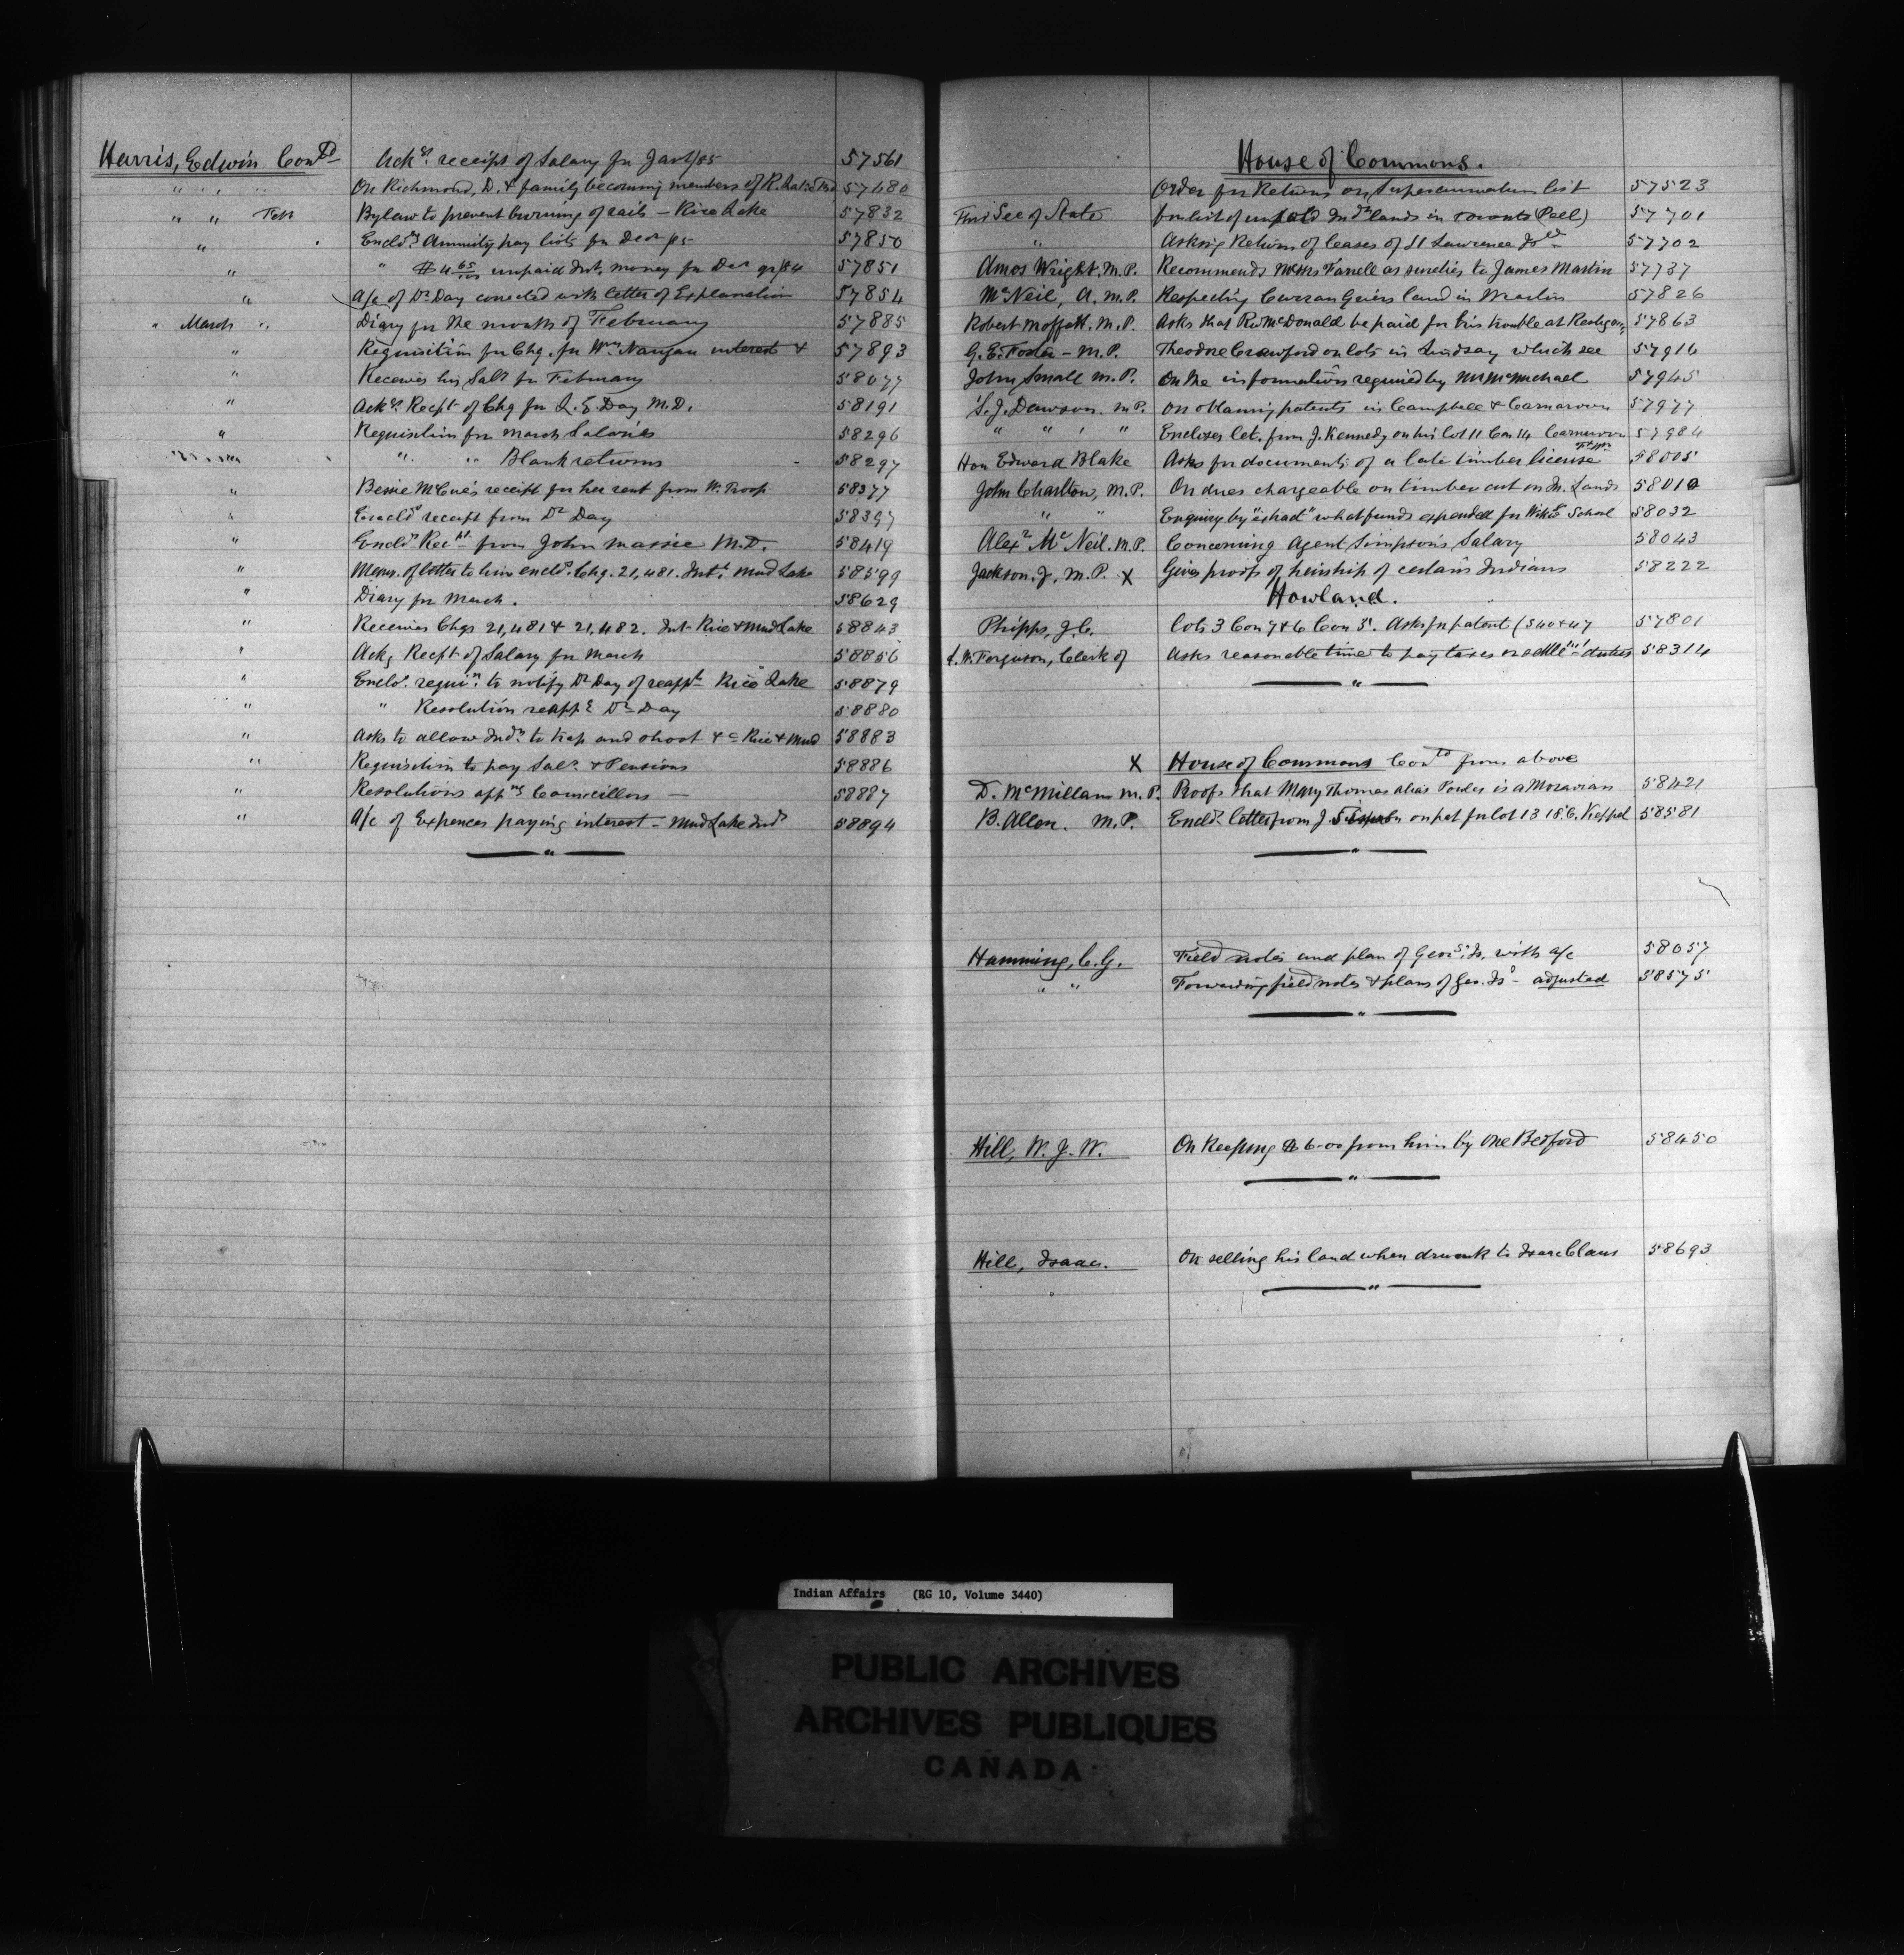 Harris, Edwin Contd Ackgs receipt of Salary for Jany/85 57561
" " " On Richmond, D. & family becoming members of R. Lake Bd 57680
" " Feb Bylaw to prevent burning of rails - Rice Lake 57832
" Encldg Annuity pay lists for Decr /85 57850
" " $4 65/100 unpaid Int. money for Decr qr/84 57851
" A/c of Dr Day corrected with letter of Explanation 57854
" March " Diary for the month of February 57885
" Requisition for Chq. for Wm Naugan interest & 57893
" Receives his Saly for February 58077
" Ackgs Recpt of Chq for L. E. Day M.D. 58191
" Requisition for March Salaries 58296
" " Blank returns 58297
" Bessie McCue's receipt for her rent from W. Troop 58377
" Encldg receipt from Dr Day 58397
" Encldg Recpt from John Massie M.D. 58419
" Memo. of letter to him encldg Chq. 21,481. Int. Mud Lake 58599
" Diary for March. 58629
" Receives Chqs 21,481 & 21,482. Int Rice & Mud Lake 58843
" Ackg Recpt of Salary for March 58856
" Encldg requin to notify Dr Day of reappt Rice Lake 58879
" " Resolution reappg Dr Day 58880
" Asks to allow Inds to trap and shoot &c Rice & Mud 58883
" Requisition to pay Saly & Pensions 58886
" Resolutions appng Councillors - 58887
" A/c of Expences paying interest - Mud Lake Inds 58894
House of Commons.
Order for Return on Superannuation list 57523
Und Sec of State for list of unsold Indn lands in County (Peel) 57701
" Asking Return of leases of St Lawrence Islds 57702
Amos Wright, M.P. Recommends Messrs Farrell as sureties to James Martin 57737
McNeil, A. M.P. Respecting Curran Geirs land in Wiarton 57826
Robert Moffatt. M.P. Asks that Rev McDonald be paid for his trouble at Restigou 57863
G. E. Foster - M.P. Theodore Crawford on lots in Lindsay which see 57916
John Small M.P. On the information required by Mr McMichael 57945
S. J. Dawson. M.P. On obtaining patents in Campbell & Carnarvon 57977
" " " " Encloses let. from J. Kennedy on his lot 11 Con 14 Carnarvon 57984
Hon Edward Blake Asks for documents of a late timber license 58005
John Charlton, M.P. On dues chargeable on timber cut on In. Lands 58010
" " Enquiry by "echad" what funds expended for Wikg School 58032
Alexr McNeil. M.P. Concerning Agent Simpson's Salary 58043
Jackson, J, M.P. X Gives proofs of heirship of certain Indians 58222
Howland.
Phipps, J. C. Lots 3 Con 7 & 6 Con 5. Asks for patent (540 & 47 57801
Ferguson, Clerk of Asks reasonable time to pay taxes 58314
X House of Commons Contd from above
D. McMillan M.P. Proofs that Mary Thomas alias Powles is a Moravian 58421
B. Allen. M.P. Encldg letter from J. Simpson on pat for lot 13 15 C. Keppel 58581
Hamming, C. G. Field notes and plan of Geor. Is. with a/c 58057
" " Forwarding field notes & plans of Geo. Is - adjusted 58575
Hill, W. J. W. On Keeping $6.00 from him by One Bedford 58450
Hill, Isaac. On selling his land when drunk to Isaac Claus 58693
Indian Affairs (RG 10, Volume 3440)
PUBLIC ARCHIVES
ARCHIVES PUBLIQUES
CANADA